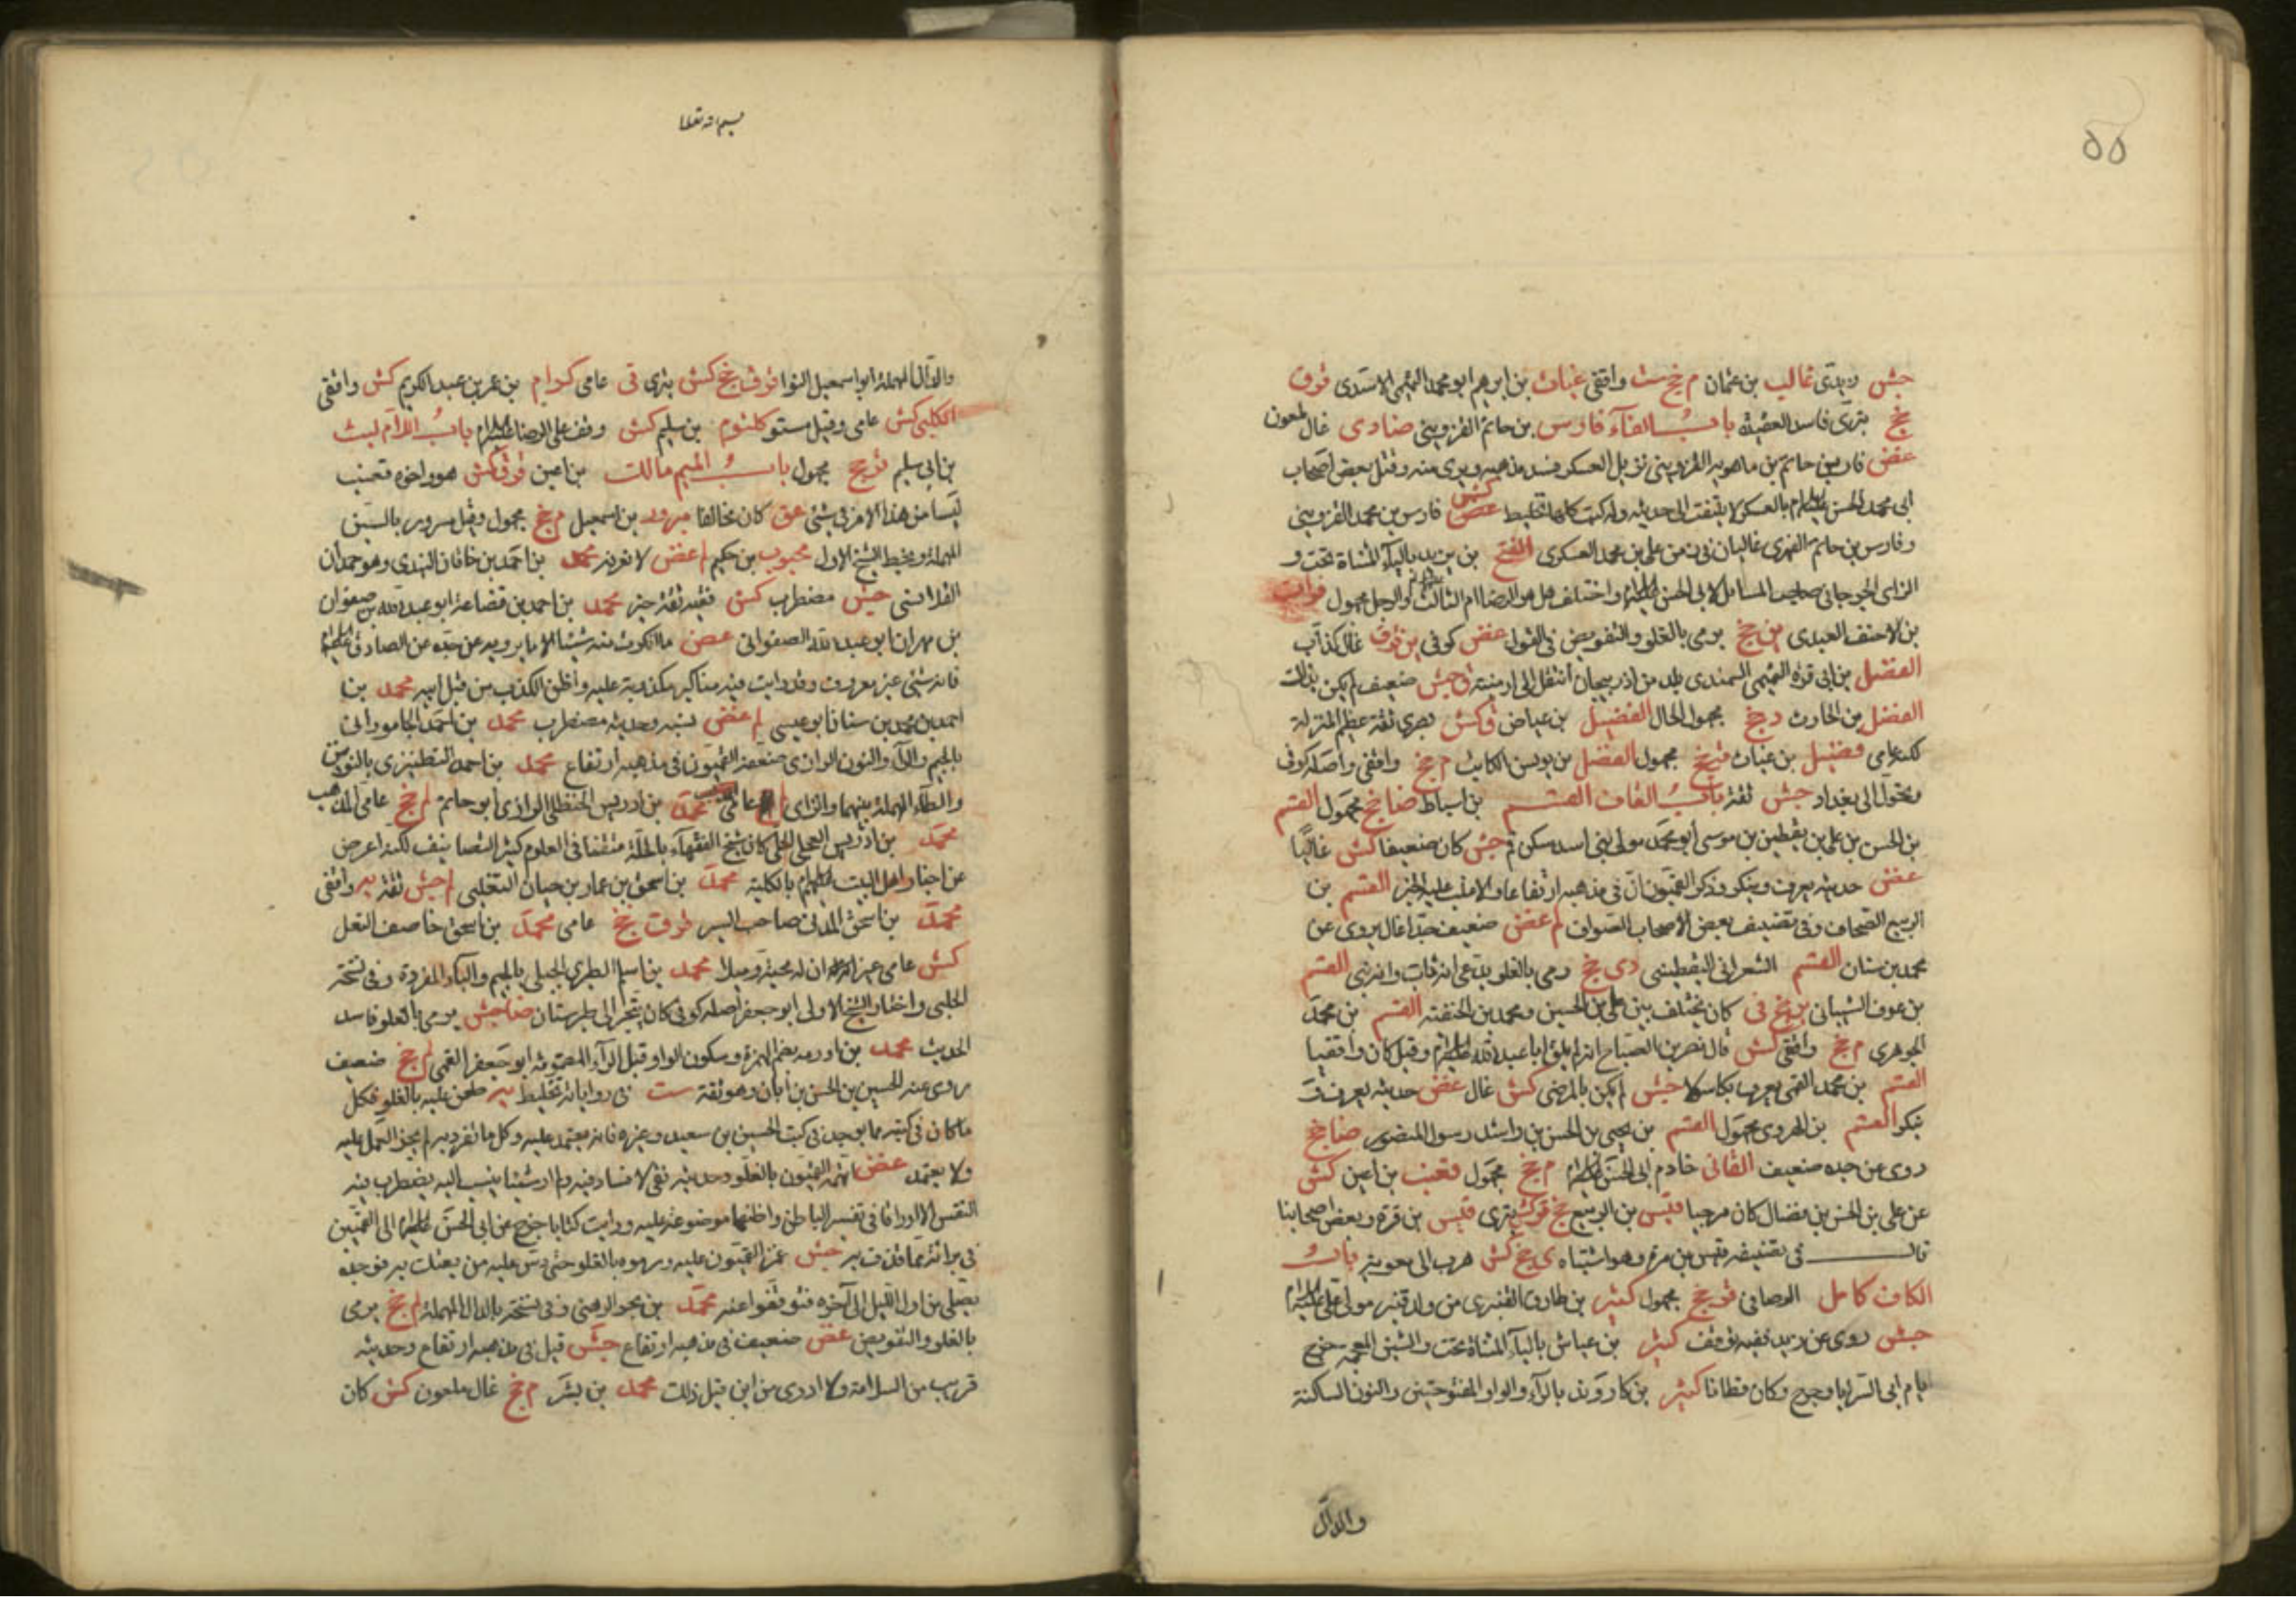 ٥٥
جش زيدى غالب بن عثمان م جخ ست واقفى غياث بن ابرهيم ابو محمد التميمى الاسدى ق وق
جخ بترى فاسد العقيدة باب الفاء فارس بن حاتم القزوينى ضا دى غال ملعون
غض فارس بن حاتم بن ماهويه القزوينى نزيل العسكر فسد مذهبه وبرى منه وقتل بعض اصحاب
ابى محمد الحسن عليه السلام بالعسكر لا يلتفت الى حديثه وله كتب كلها تخليط غض كش فارس بن محمد القزوينى
وفارس بن حاتم الفهرى غاليان فى زمن على بن محمد العسكرى الفتح بن يزيد بالياء المثناة تحت و
الزاى الجرجانى صاحب المسائل لابى الحسن عليه السلام واختلف هل هو الرضا ام الثالث والرجل مجهول فرات
بن الاحنف العبدى ين جخ يرمى بالغلو والتفويض فى القول غض كوفى ين قر ق غال كذاب
الفضل بن ابى قرة التميمى السمندى بلد من اذربيجان انتقل الى ارمنية ق جش ضعيف لم يكن بذلك
الفضل بن الحارث د جخ مجهول الحال الفضيل بن عياض ق كش بصرى ثقة عظيم المنزلة
لكنه عامى فضيل بن غياث ق جخ مجهول الفضل بن يونس الكاتب م جخ واقفى واصله كوفى
وتحول الى بغداد جش ثقة باب القاف القسم بن اسباط ضا جخ مجهول القسم
بن الحسن بن على بن يقطين بن موسى ابو محمد مولى بنى اسد سكن قم جش كان ضعيفا كش غاليا
غض حديثه يعرف وينكر وذكر القميون ان فى مذهبه ارتفاعا والاغلب عليه الخير القسم بن
الربيع الصحاف وفى تصنيف بعض الاصحاب الصواف لم غض ضعيف جدا غال يروى عن
محمد بن سنان القسم الشعرانى اليقطينى دى جخ رمى بالغلو يدعى انه باب وانه نبى القسم
بن عوف الشيبانى ين جخ فى كان يختلف بين على بن الحسين ومحمد بن الحنفية القسم بن محمد
الجوهرى م جخ واقفى كش قال نصر بن الصباح انه لم يلق ابا عبد الله عليه السلام وقيل كان واقفيا
القسم بن محمد القمى يعرف بكاسولا جش لم يكن بالمرضى كش غال غض حديثه يعرف و
ينكر القسم بن الهروى مجهول القسم بن يحيى بن الحسن بن راشد رسول المنصور ضا جخ
روى عن جده ضعيف القانى خادم ابى الحسن عليه السلام م جخ مجهول قعنب بن اعين كش
عن على بن الحسن بن فضال كان مرجيا قيس بن الربيع جخ قر كش بترى قيس بن قرة وبعض اصحابنا
قال فى تصنيفه قيس بن مرة وهو اشتباه ى جخ كش هرب الى معوية باب
الكاف كامل الرصافى قر جخ مجهول كثير بن طارق القنبرى من ولد قنبر مولى على عليه السلام
جش روى عن زيد ففيه توقف كثير بن عياش بالياء المثناة تحت والشين المعجمة خرج
ايام ابى السرايا وجرح وكان قطانا كثير بن كاروند بالراء والواو المفتوحتين والنون الساكنة
والدال
بسم الله تعالى
والدال المهملة ابو اسمعيل النوا قر ق جخ كش بترى قى عامى كرام بن عمرو بن عبد الكريم كش واقفى
الكلبى كش عامى وقيل مستور كلثوم بن سليم كش وقف على الرضا عليه السلام باب اللام ليث
بن ابى سليم قر جخ مجهول باب الميم مالك بن اعين قر ق كش هو واخوه قعنب
ليسا من هذا الامر فى شئ عق كان مخالفا مرور بن اسمعيل م جخ مجهول وقيل مسرور بالسين
المهملة وبخط الشيخ الاول محبوب بن حكيم لم غض لا نعرفه محمد بن احمد بن خاقان النهدى وهو حمدان
القلانسى جش مضطرب كش فقيه ثقة خير محمد بن احمد بن قضاعة ابو عبد الله بن صفوان
بن مهران ابو عبد الله الصفوانى غض ما انكرت منه شيئا الا ما يرويه عن جده عن الصادق عليه السلام
فانه شئ غير معروف وقد رايت فيه مناكير مكذوبة عليه واظن الكذب من قبل ابيه محمد بن
احمد بن محمد بن سنان ابو عيسى لم غض نسبه وحديثه مضطرب محمد بن احمد الجامورانى
بالجيم والراء والنون الرازى ضعفه القميون فى مذهبه ارتفاع محمد بن احمد النطنزى بالنونين
والطاء المهملة بينهما والزاى عامى محمد بن ادريس الحنظلى الرازى ابو حاتم لم جخ عامى المذهب
محمد بن ادريس العجلى الحلى كان شيخ الفقهاء بالحلة متقنا فى العلوم كثير التصانيف لكنه اعرض
عن اخبار اهل البيت عليهم السلام بالكلية محمد بن اسحق بن عمار بن حيان التغلبى م جش ثقة يه واقفى
محمد بن اسحق المدنى صاحب السير قر ق جخ عامى محمد بن اسحق خاصف النعل
كش عامى غير ان له محبة وميلا محمد بن اسلم الطبرى الجبلى بالجيم والباء المفردة وفى نسخة
الحلبى واختار الشيخ الاولى ابو جعفر اصله كوفى كان يتجر الى طبرستان ضا جش يرمى بالغلو فاسد
الحديث محمد بن اورمه بضم الهمزة وسكون الواو قبل الراء المضمومة ابو جعفر القمى لم جخ ضعيف
روى عنه الحسين بن الحسن بن ابان وهو ثقة ست فى رواياته تخليط يه طعن عليه بالغلو فكل
ما كان فى كتبه مما يوجد فى كتب الحسين بن سعيد وغيره فانه يعتمد عليه وكل ما تفرد به لم يجز العمل عليه
ولا يعتمد غض اتهمه القميون بالغلو وحديثه نقى لا فساد فيه ولم ار شيئا ينسب اليه يضطرب فيه
النفس الا اوراقا فى تفسير الباطن واظنها موضوعة عليه ورايت كتابا خرج عن ابى الحسن عليه السلام الى القميين
فى براءته مما قذف به جش غمز القميون عليه ورموه بالغلو حتى دس عليه من يفتك به فوجده
يصلى من اول الليل الى آخره فتوقفوا عنه محمد بن بحر الرهنى وفى نسخة بالدال المهملة لم جخ يرمى
بالغلو والتفويض غض ضعيف فى مذهبه ارتفاع جش قيل فى مذهبه ارتفاع وحديثه
قريب من السلامة ولا ادرى من اين قيل ذلك محمد بن بشر م جخ غال ملعون كش كان